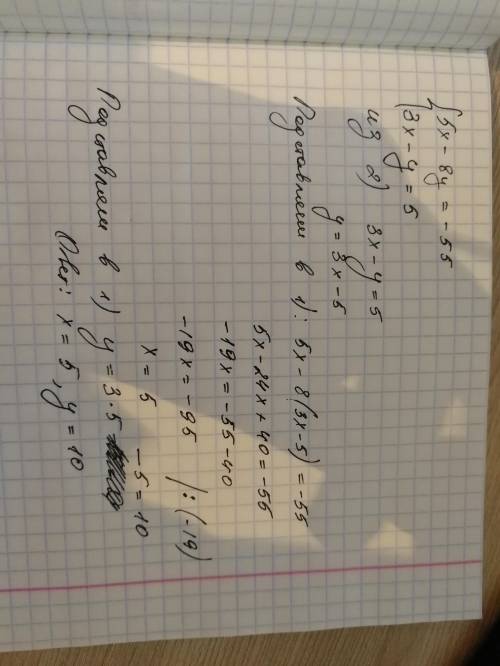 { 5x - 8y = -55
3x - y = 5
из 2) 3x - y = 5
y = 3x - 5
Подставляем в 1): 5x - 8(3x-5) = -55
5x - 24x + 40 = -55
-19x = -55 - 40
-19x = -95 | : (-19)
x = 5
Подставляем в 1) y = 3·5 - 5 = 10
Ответ: x = 5, y = 10